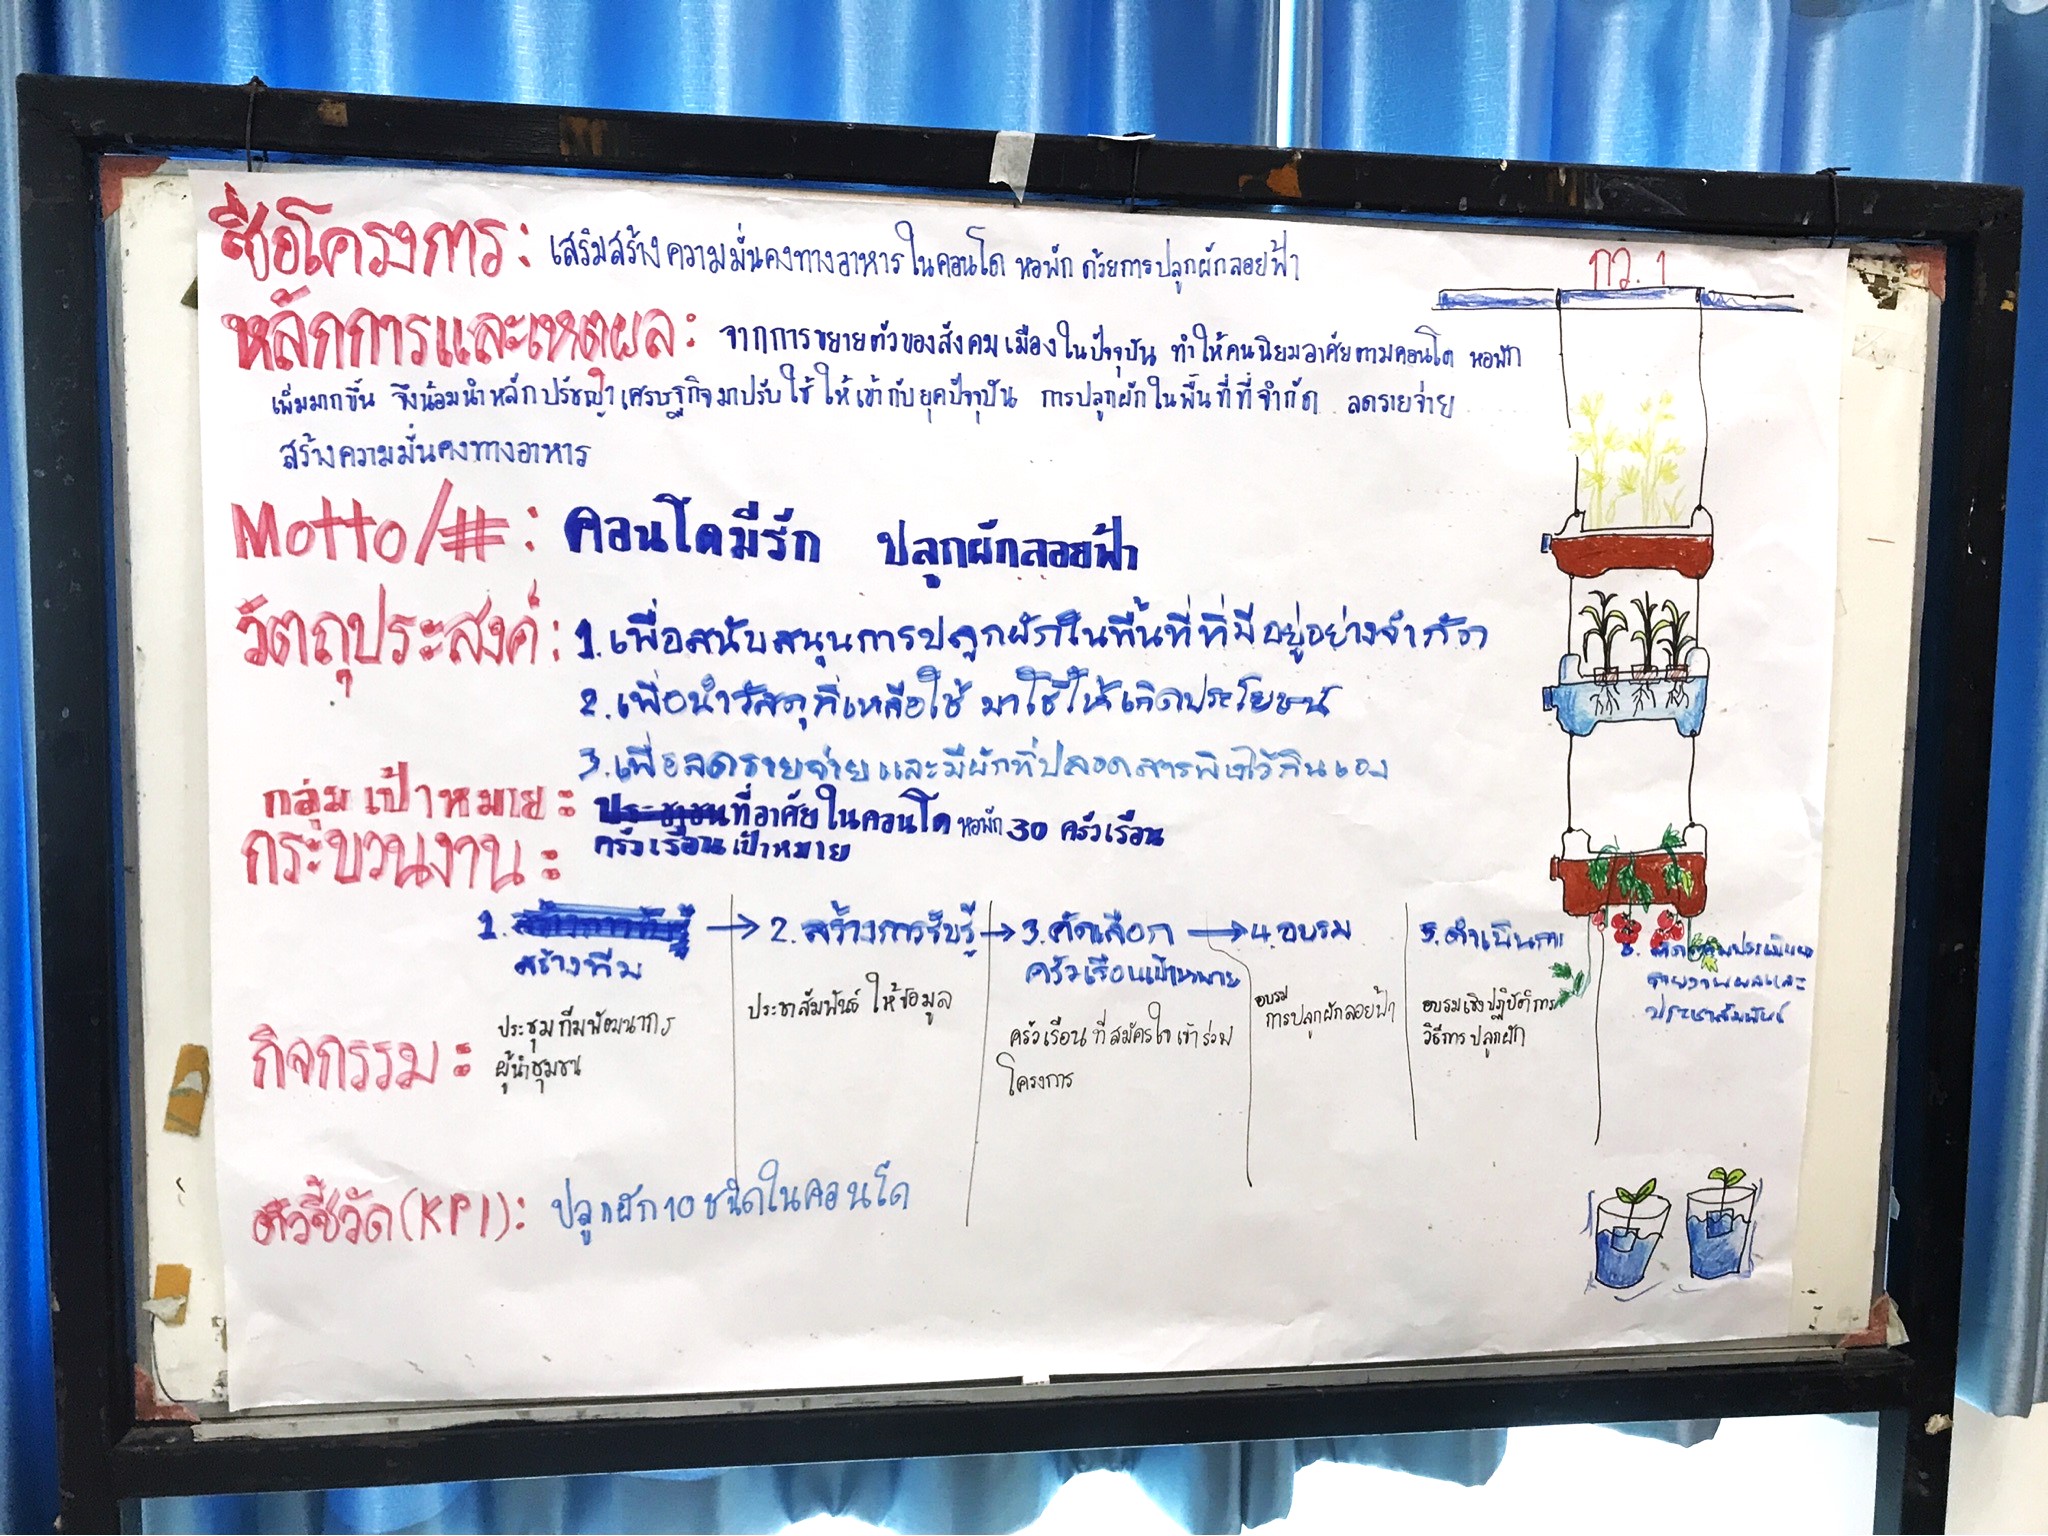 ชื่อโครงการ: เสริมสร้างความมั่นคงทางอาหารในคอนโด หอพัก ด้วยการปลูกผักลอยฟ้า
กว. 1
หลักการและเหตุผล: จากการขยายตัวของสังคมเมืองในปัจจุบัน ทำให้คนนิยมอาศัยตามคอนโด หอพัก
เพิ่มมากขึ้น จึงน้อมนำหลักปรัชญาเศรษฐกิจมาปรับใช้ให้เข้ากับยุคปัจจุบัน การปลูกผักในพื้นที่ที่จำกัด ลดรายจ่าย
สร้างความมั่นคงทางอาหาร
Motto/#: คอนโดมีรัก ปลูกผักลอยฟ้า
วัตถุประสงค์: 1. เพื่อสนับสนุนการปลูกผักในพื้นที่ที่มีอยู่อย่างจำกัด
2. เพื่อนำวัสดุที่เหลือใช้ มาใช้ให้เกิดประโยชน์
3. เพื่อลดรายจ่ายและมีผักที่ปลอดสารพิษไว้กินเอง
กลุ่มเป้าหมาย: ประชาชนที่อาศัยในคอนโด หอพัก 30 ครัวเรือน
ครัวเรือนเป้าหมาย
กระบวนงาน:
1. สร้างการรับรู้ → 2. สร้างการรับรู้ → 3. คัดเลือก → 4. อบรม 5. ดำเนินการ 6. ติดตามประเมินผล
สร้างทีม ครัวเรือนเป้าหมาย รายงานผลและ
ประชาสัมพันธ์
กิจกรรม: ประชุมทีมพัฒนากร ประชาสัมพันธ์ ให้ข้อมูล ครัวเรือนที่สมัครใจเข้าร่วม อบรม อบรมเชิงปฏิบัติการ
ผู้นำชุมชน โครงการ การปลูกผักลอยฟ้า วิธีการปลูกผัก
ตัวชี้วัด(KPI): ปลูกผัก 10 ชนิดในคอนโด